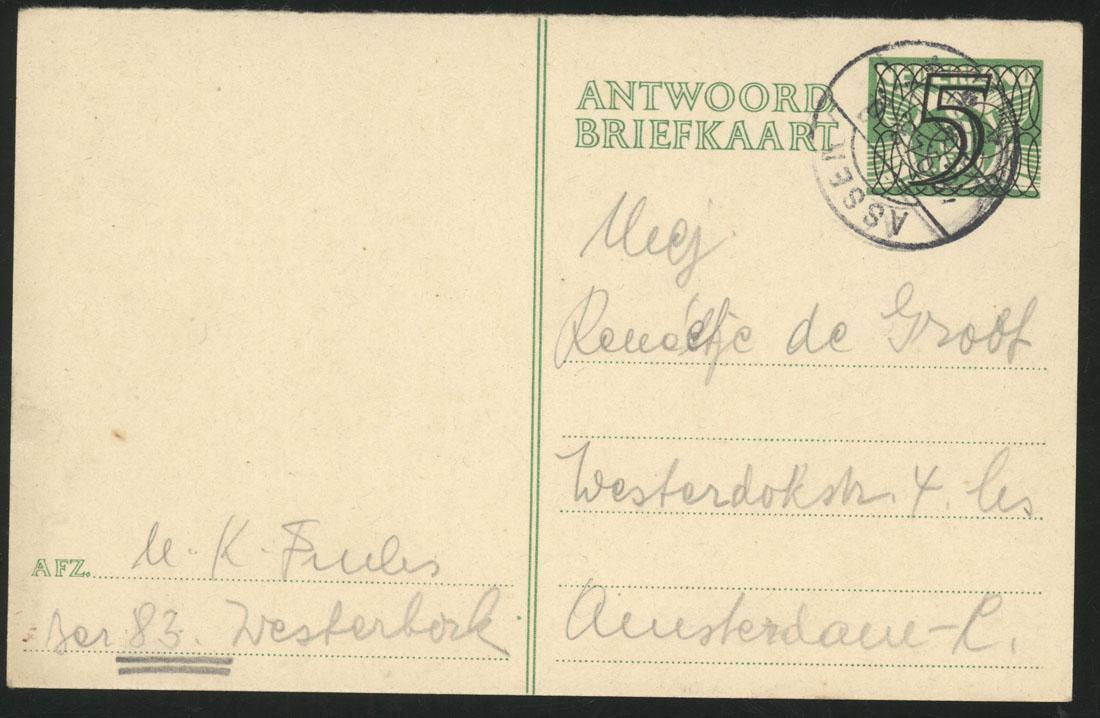 ANTWOORD
BRIEFKAART
5
ASSEN
Mej.
Renéetje de Groot
Westerdokstr. 4. hs
Amsterdam-C.
AFZ. M. K.
Bar 83. Westerbork.